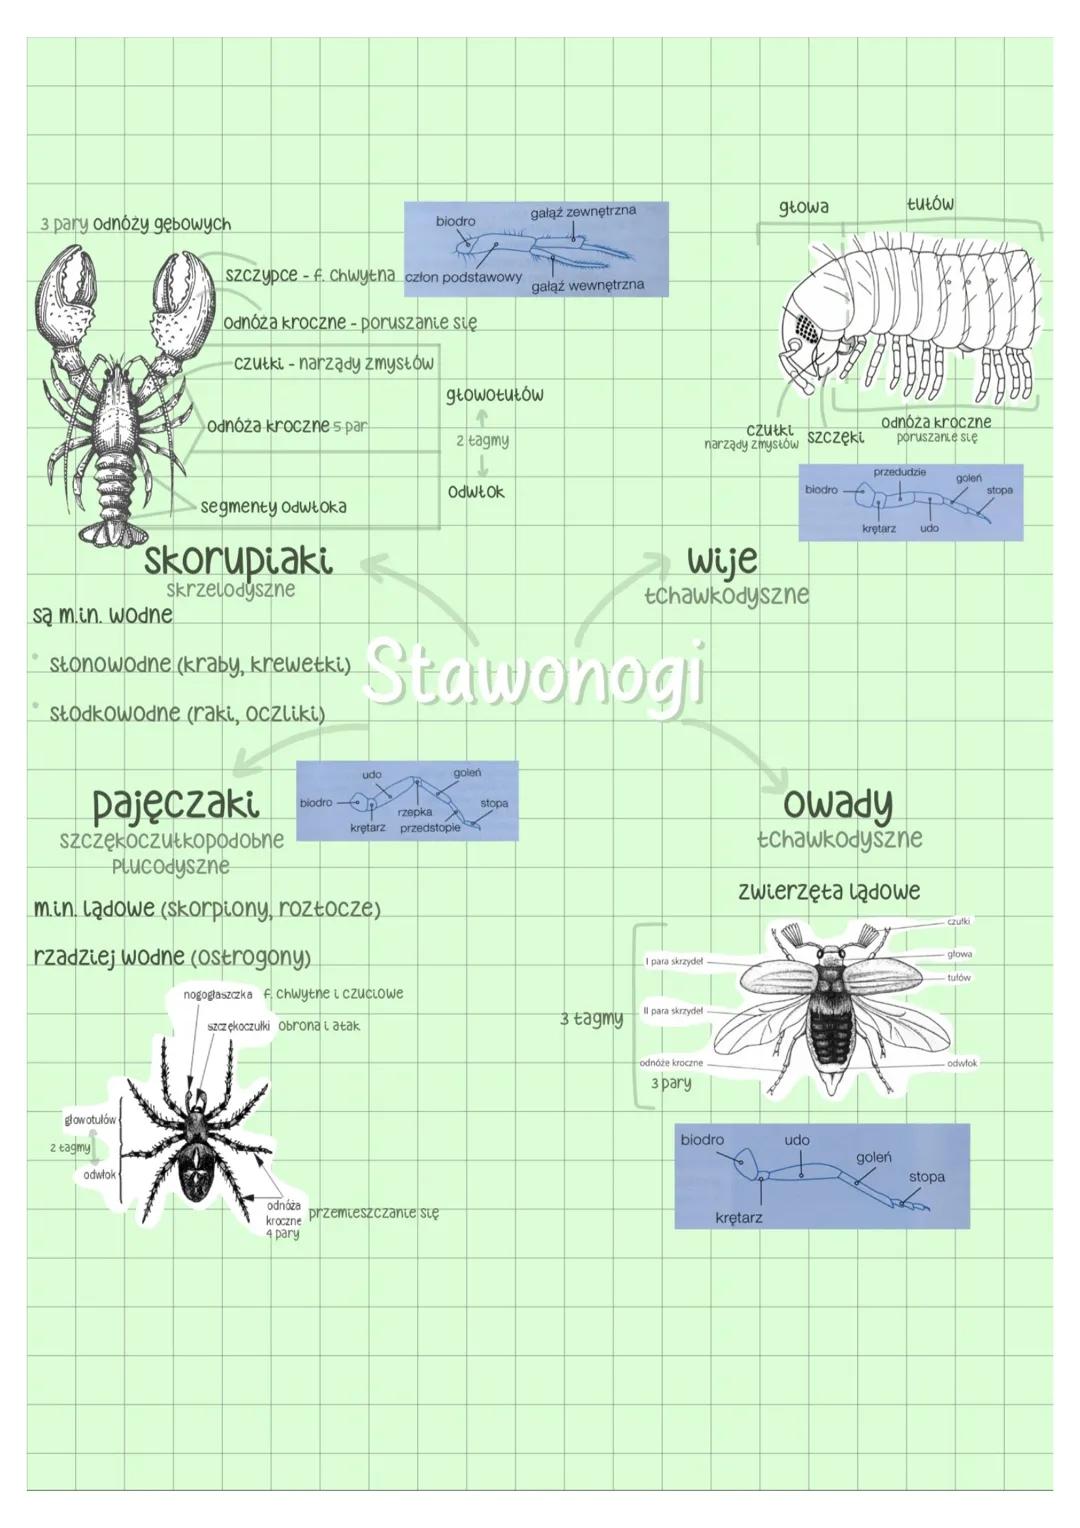 3 pary odnóży gębowych
szczypce - f. chwytna
odnóża kroczne - poruszanie się
czułki - narządy zmysłów
odnóża kroczne 5 par
segmenty odwłoka
głowotułów
2 tagmy
odwłok
biodro
gałąź zewnętrzna
człon podstawowy
gałąź wewnętrzna
głowa
tułów
czułki
narządy zmysłów
szczęki
odnóża kroczne
poruszanie się
przedudzie
biodro
goleń
stopa
krętarz
udo
skorupiaki
skrzelodyszne
są m.in. wodne
słonowodne (kraby, krewetki)
słodkowodne (raki, oczliki)
wije
tchawkodyszne
Stawonogi
pajęczaki
szczękoczułkopodobne
płucodyszne
m.in. lądowe (skorpiony, roztocze)
rzadziej wodne (ostrogony)
udo
goleń
biodro
rzepka
stopa
krętarz
przedstopie
nogogłaszczka f. chwytne i czuciowe
szczękoczułki obrona i atak
głowotułów
2 tagmy
odwłok
odnóża
kroczne
4 pary
przemieszczanie się
owady
tchawkodyszne
zwierzęta lądowe
3 tagmy
I para skrzydeł
II para skrzydeł
odnóże kroczne
3 pary
czułki
głowa
tułów
odwłok
biodro
udo
goleń
stopa
krętarz